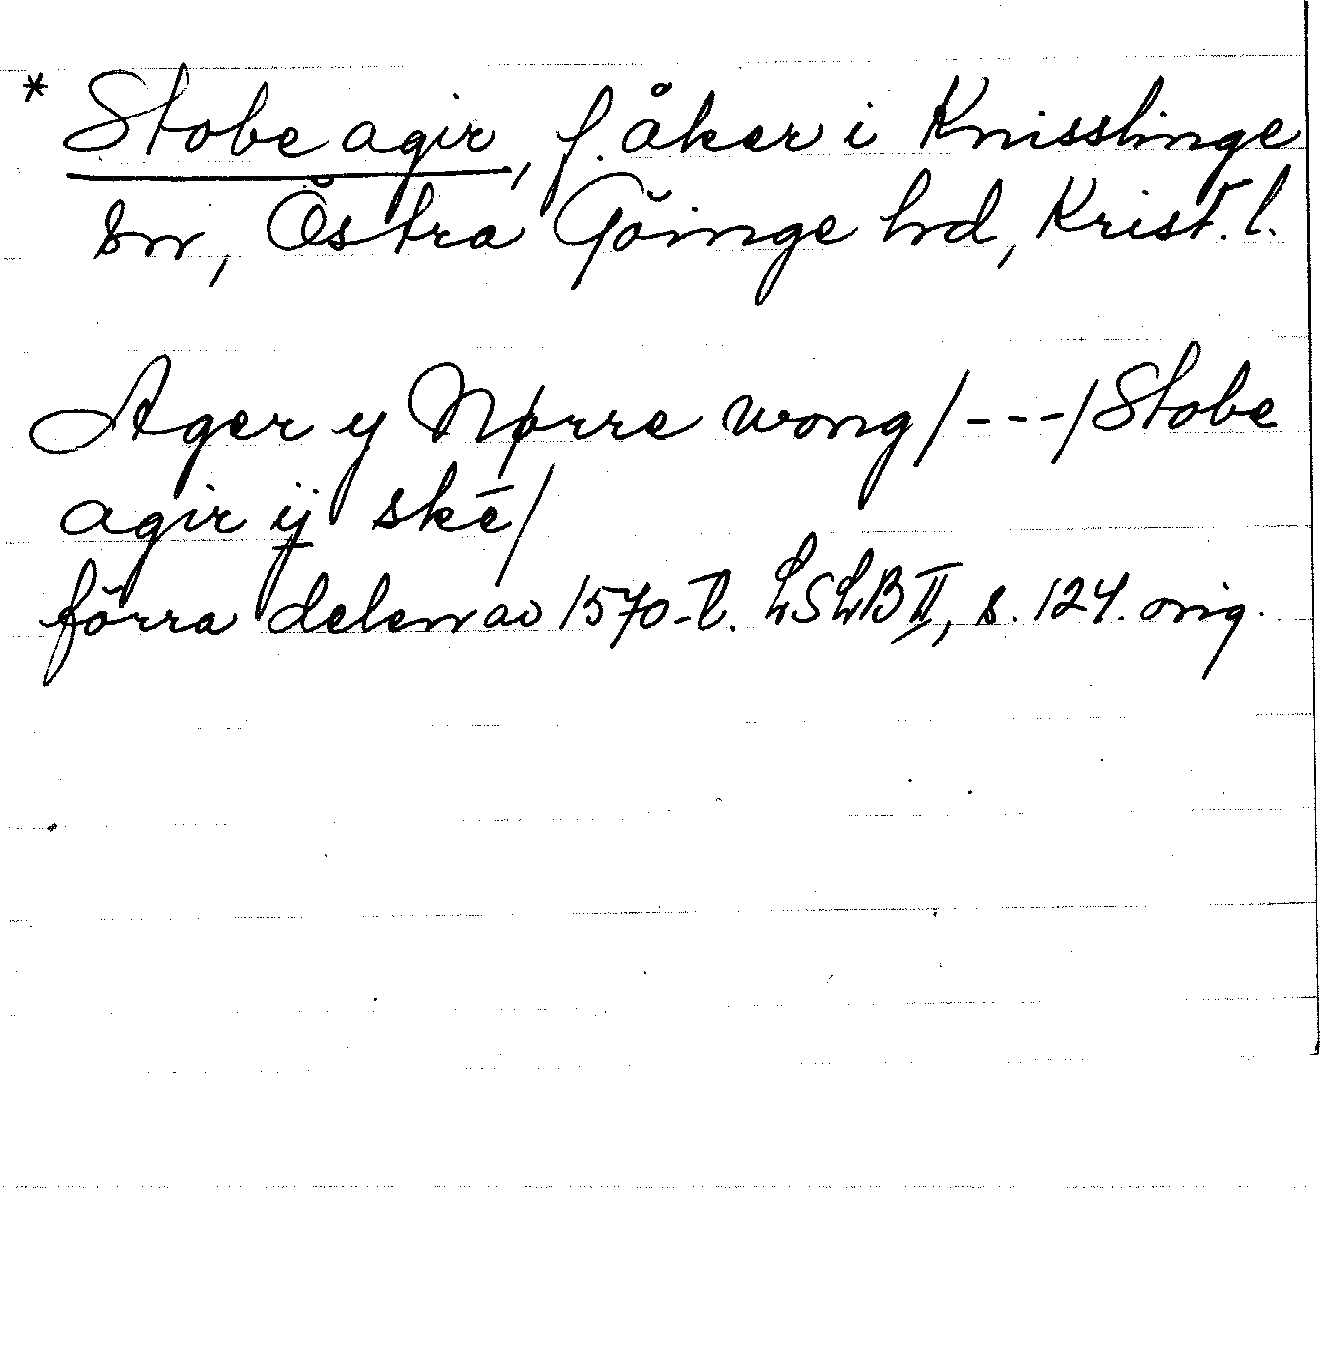 * Stobe agir, f. åker i Knisslinge
sn, Östra Göinge hd, Krist. l.
Ager y Nørre wong/---/Stobe
agir ij skē/
förra delen av 1570-t. LSLB II, s. 124. orig.